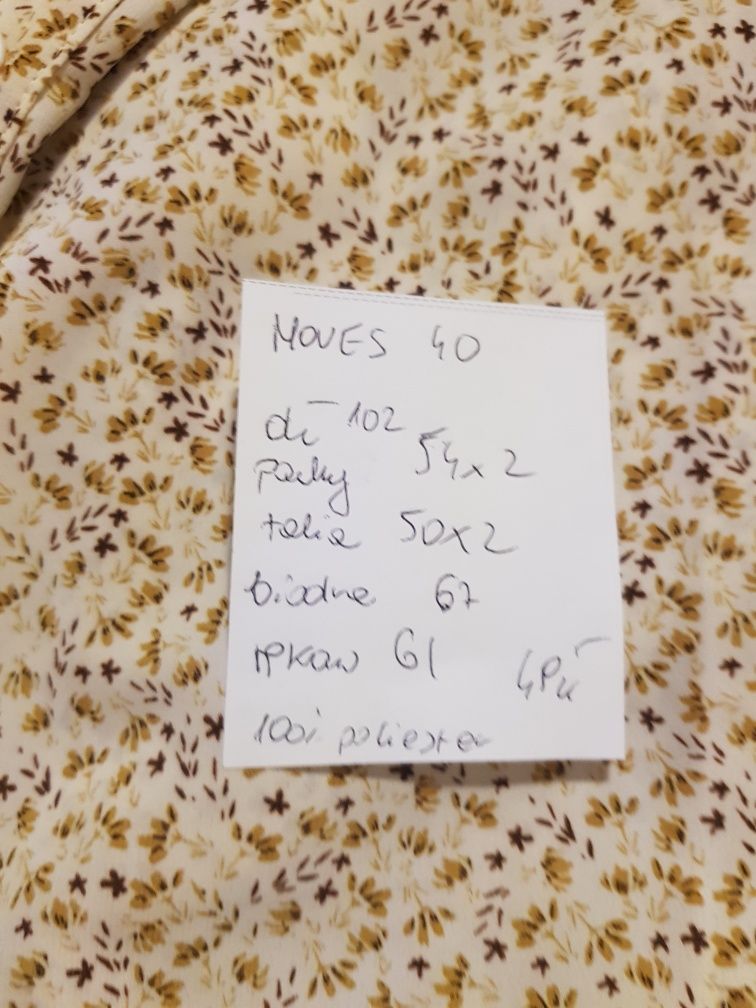 MOVES 40
dł - 102
pachy 54x2
talia 50x2
biodra 67
rękaw 61
100% poliester